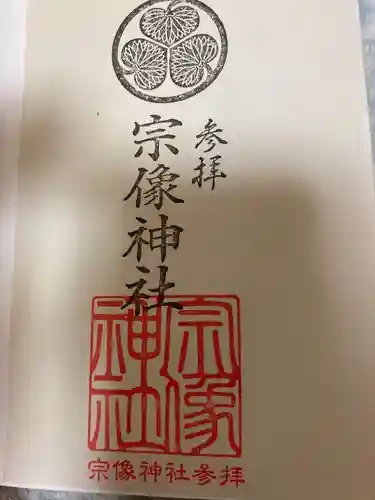 参拝
宗像神社
宗像
神社
宗像神社参拝